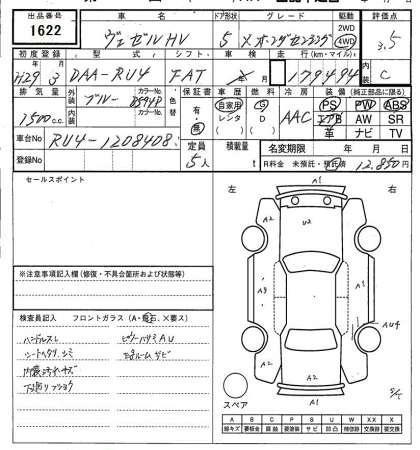 出品番号 車名 ドア形状 グレード 駆動 評価点
1622 ヴェゼルHV 5 X ホンダセンシング 2WD 4WD 3.5
初度登録 型式 シフト 車検 走行(km・マイル) 内装
H29年3月 DAA-RU4 FAT 年 月 179494 C
排気量 外装 ブルー カラーNo. B594P 色替 保証書 車歴 燃料 冷房 装備(純正部品に限る)
1500c.c. 内装 カラーNo. 有・無 自家用 レンタ G D AAC PS PW ABS
エアB AW SR
革 ナビ TV
車台No RU4-1208408 定員 積載量 名変期限 年 月 日
登録No 5人 t R料金 未預託・預託済 12,850円
セールスポイント
左 右
A1
A2 U2
A3 A1
A2 AU4
A2
A1
スペア
※注意事項記入欄(修復・不具合箇所および状態等)
検査員記入 フロントガラス(A・飛石、X要ス)
ハンドルスレ ピラーハリミAU
シートヘタリ、シミ
内張汚れキズ
下廻りフショク
A B C P S U W X XX
線キズ 要板金 腐蝕 要塗装 サビ 凹凸 補修跡 要交換